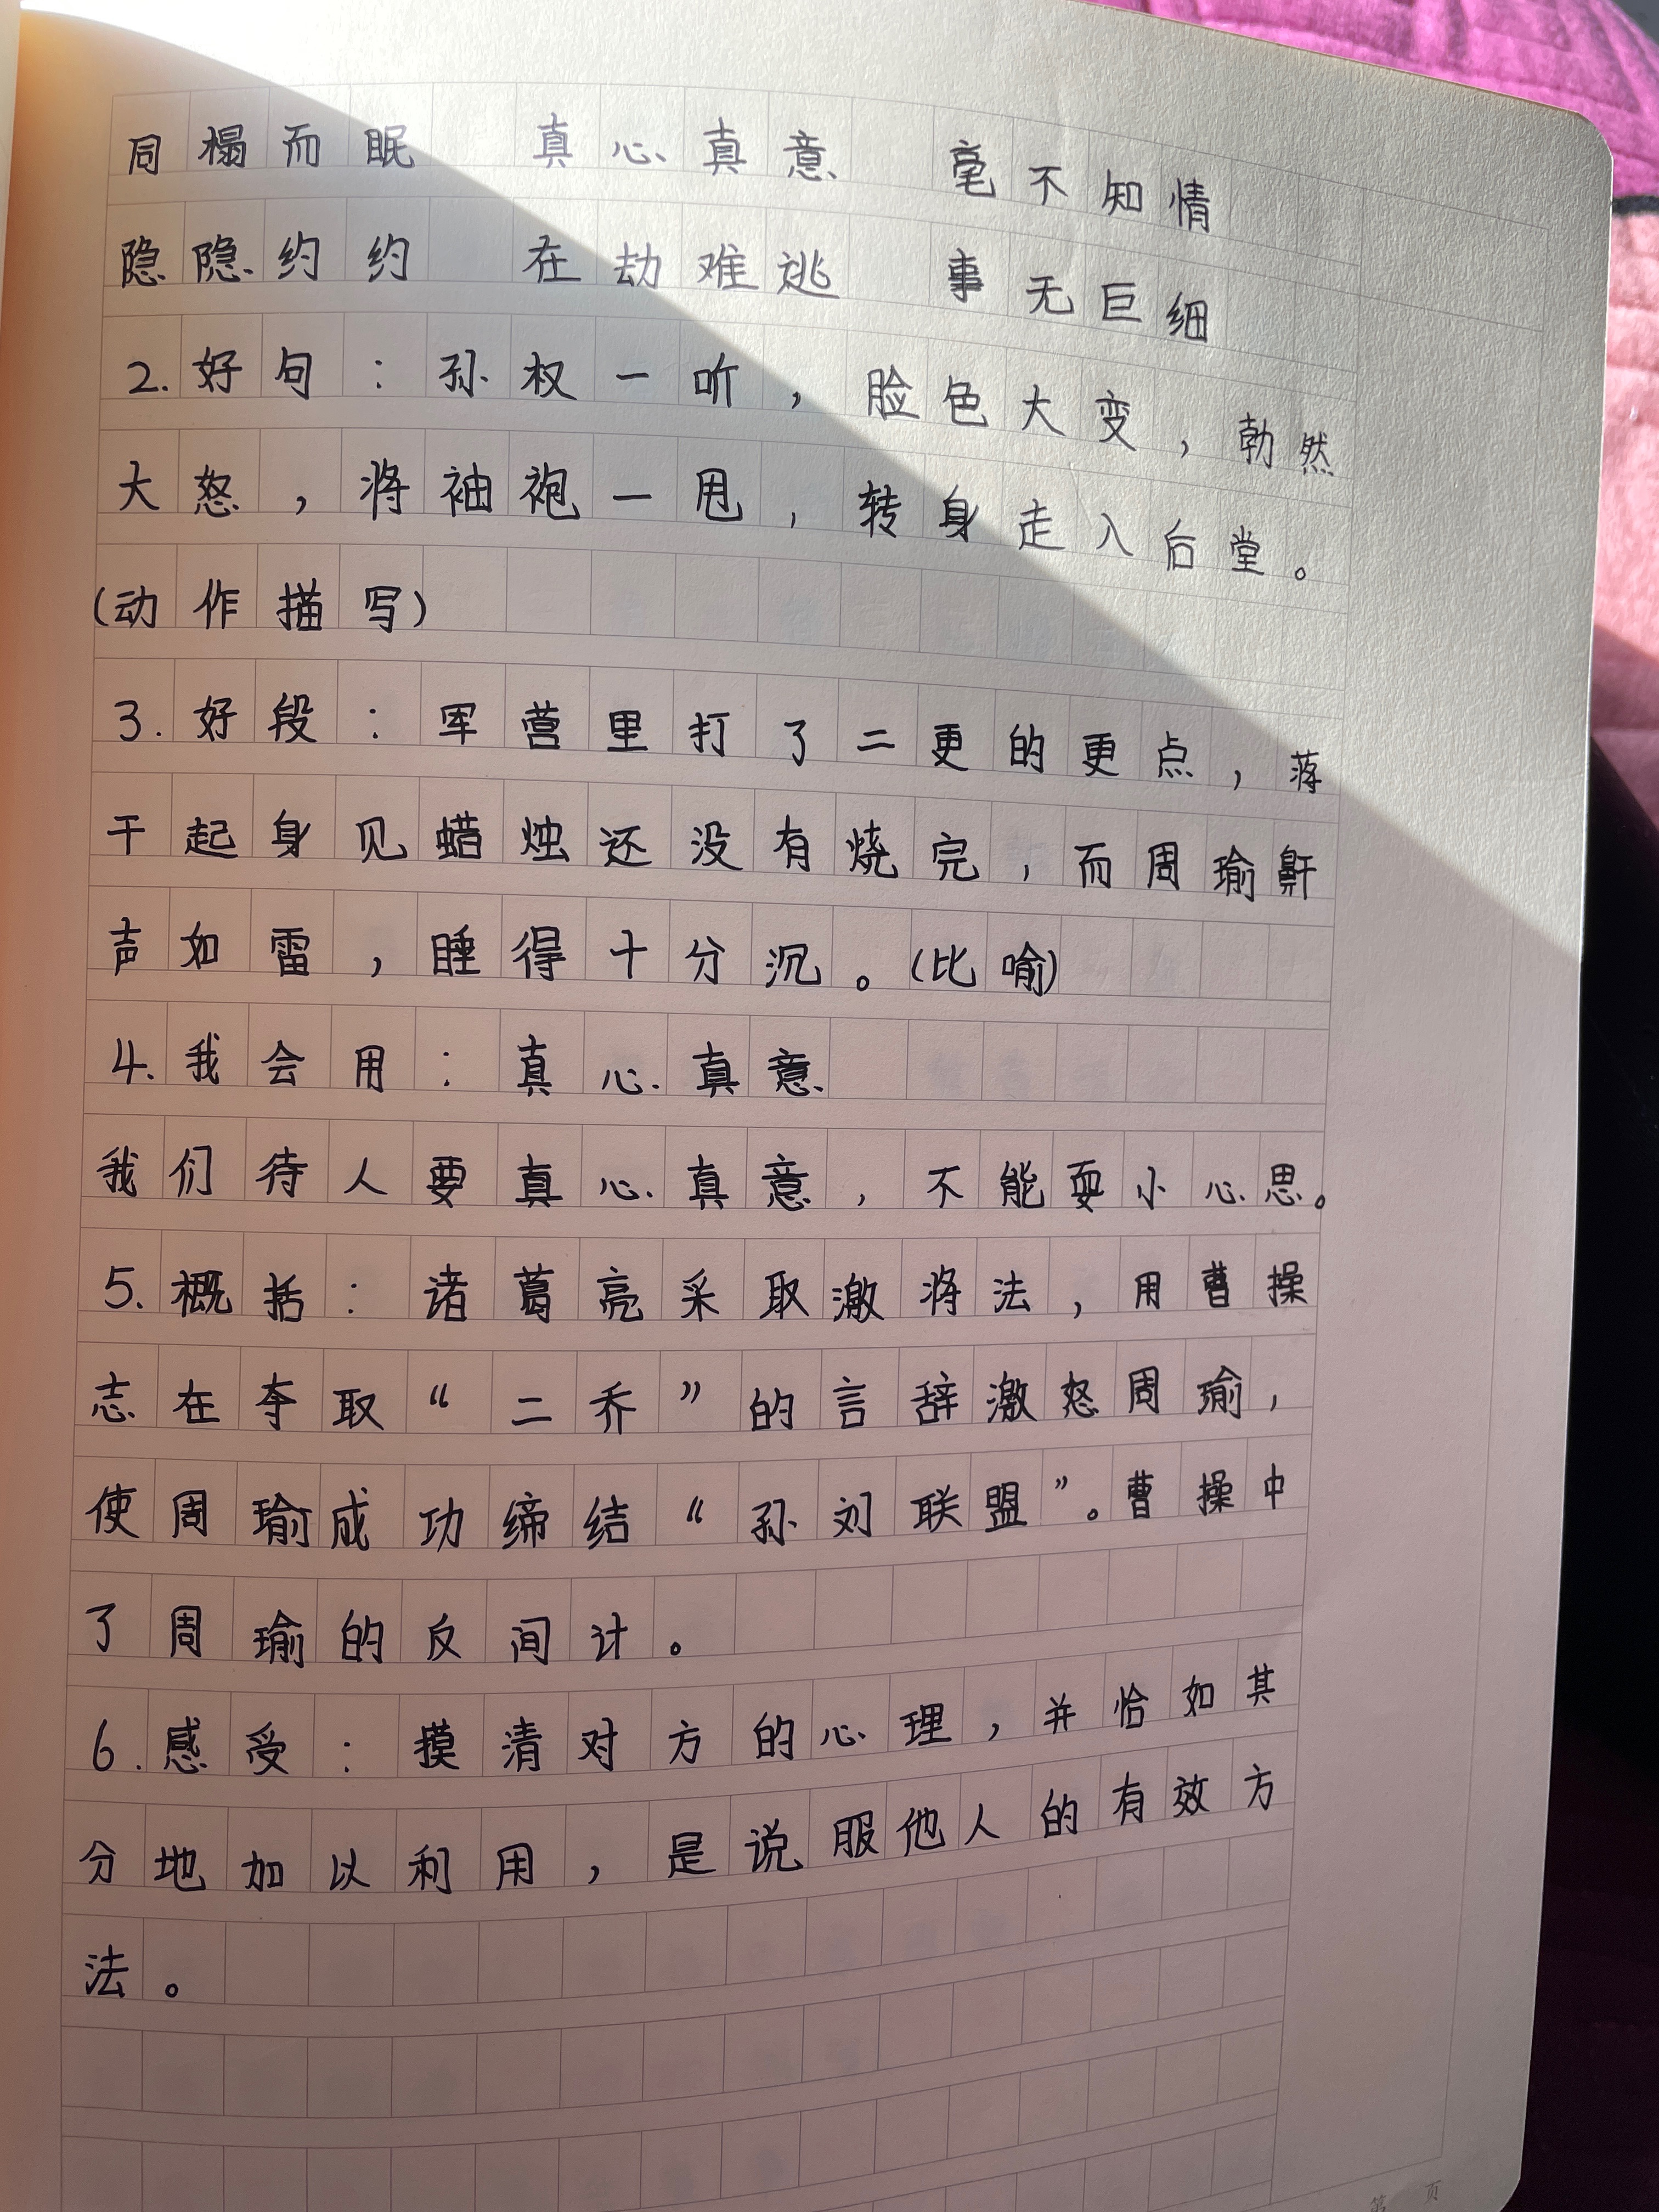 同榻而眠 真心真意 毫不知情
隐隐约约 在劫难逃 事无巨细
2.好句：孙权一听，脸色大变，勃然
大怒，将袖袍一甩，转身走入后堂。
(动作描写)
3.好段：军营里打了二更的更点，蒋
干起身见蜡烛还没有烧完，而周瑜鼾
声如雷，睡得十分沉。(比喻)
4.我会用：真心真意
我们待人要真心真意，不能耍小心思。
5.概括：诸葛亮采取激将法，用曹操
志在夺取“二乔”的言辞激怒周瑜，
使周瑜成功缔结“孙刘联盟”。曹操中
了周瑜的反间计。
6.感受：摸清对方的心理，并恰如其
分地加以利用，是说服他人的有效方
法。
第 页